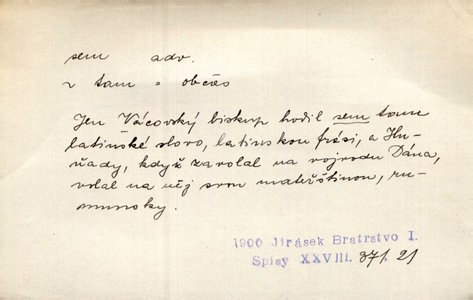 sem adv.
~ tam = občas
Jen Vácovský biskup hodil sem tam
latinské slovo, latinskou frási, a Hu-
ňady, když zavolal na vojvodu Dána,
volal na něj svou mateřštinou, ru-
munsky.
1900 Jirásek Bratrstvo I.
Spisy XXVIII. 371. 21